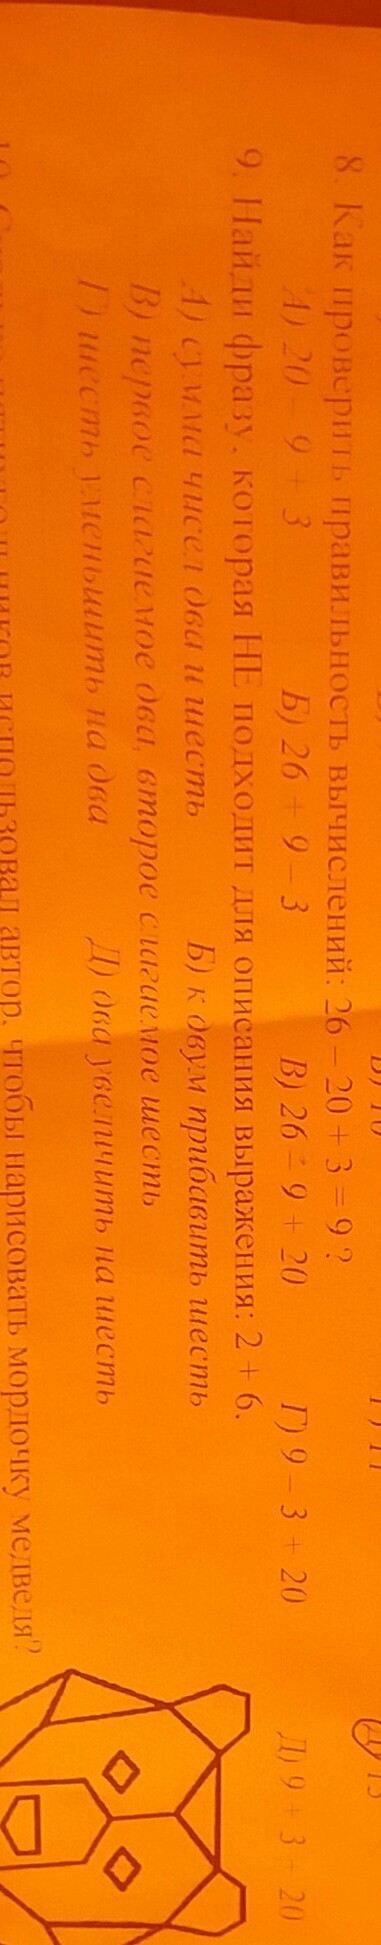 8. Как проверить правильность вычислений: 26 – 20 + 3 = 9 ?
А) 20 – 9 + 3 Б) 26 + 9 – 3 В) 26 – 9 + 20 Г) 9 – 3 + 20 Д) 9 + 3 + 20
9. Найди фразу, которая НЕ подходит для описания выражения: 2 + 6.
А) сумма чисел два и шесть Б) к двум прибавить шесть
В) первое слагаемое два, второе слагаемое шесть
Г) шесть уменьшить на два Д) два увеличить на шесть
использовал автор, чтобы нарисовать мордочку медведя?